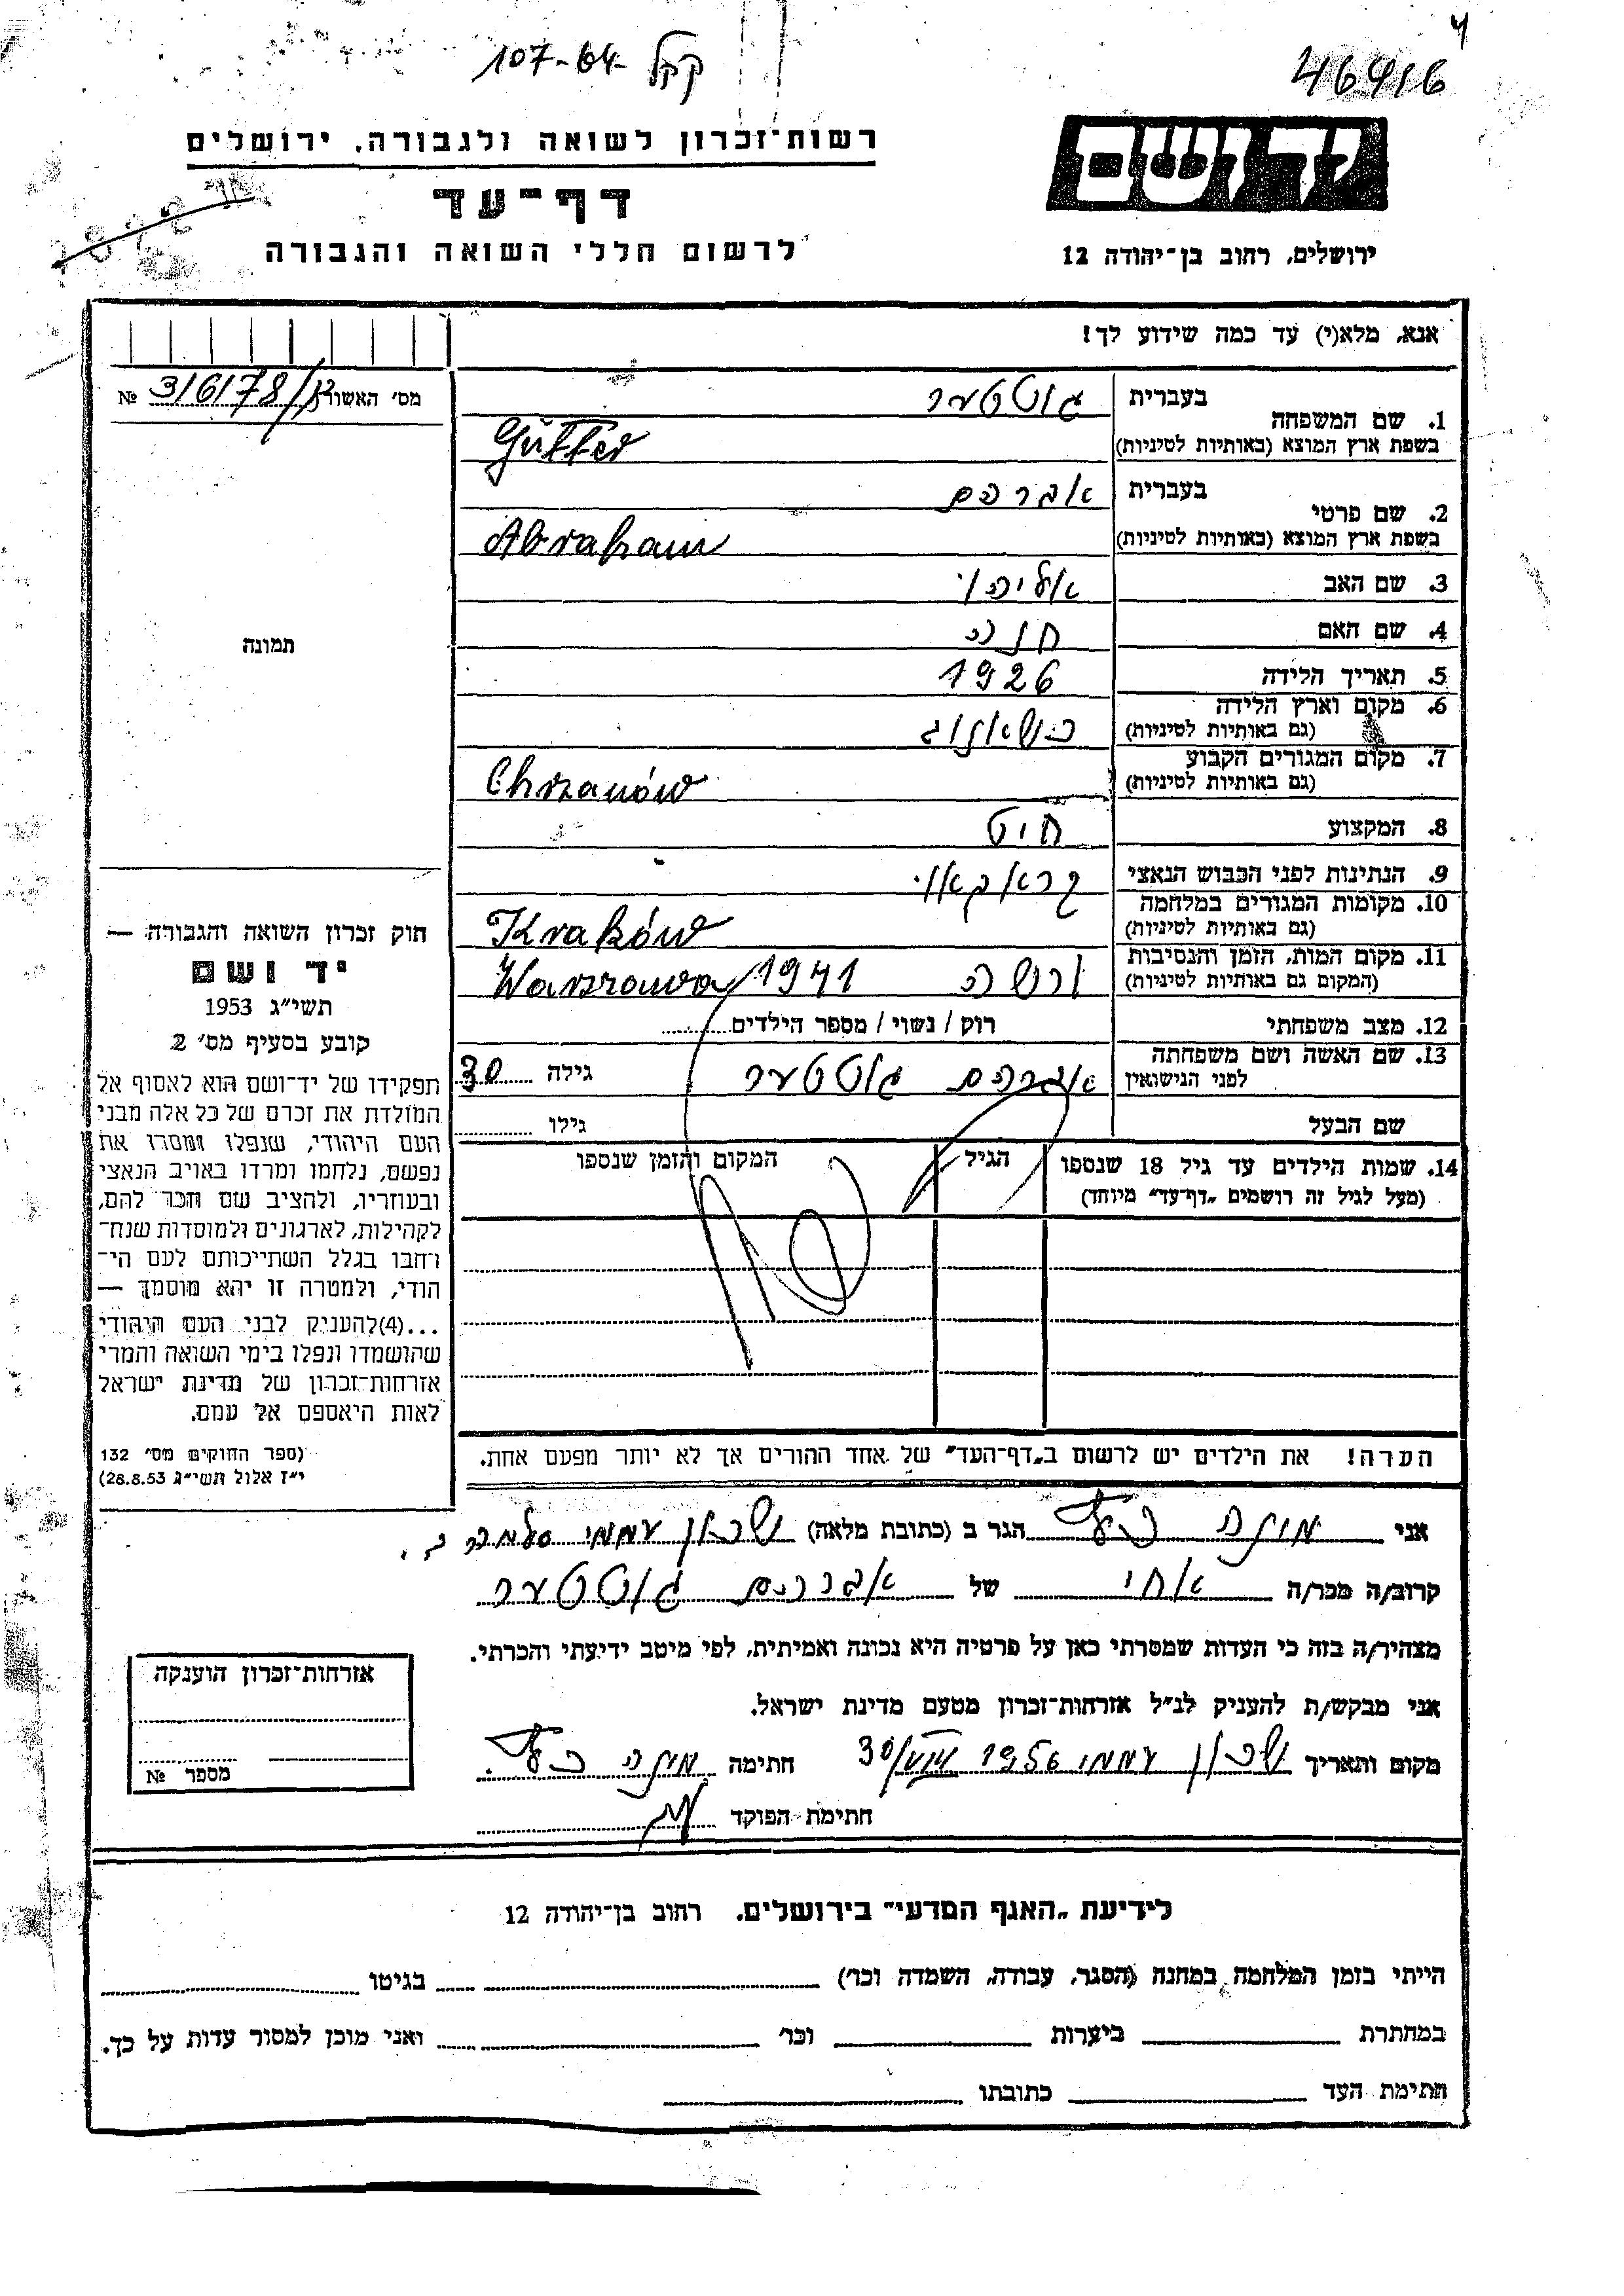 4
קקל 107-64-
46416
רשות־זכרון לשואה ולגבורה, ירושלים
יד ושם
דף־עד
לרשום חללי השואה והגבורה
ירושלים, רחוב בן־יהודה 12
אנא, מלא(י) עד כמה שידוע לך!
מס׳ האשור № 316178/12
1. שם המשפחה בעברית גוטטער
בשפת ארץ המוצא (באותיות לטיניות) Gutter
2. שם פרטי בעברית אברהם
בשפת ארץ המוצא (באותיות לטיניות) Abraham
3. שם האב אליהו
4. שם האם חנה
5. תאריך הלידה 1926
6. מקום וארץ הלידה
(גם באותיות לטיניות)
7. מקום המגורים הקבוע
(גם באותיות לטיניות) Chrzanów
8. המקצוע חייט
9. הנתינות לפני הכבוש הנאצי
10. מקומות המגורים במלחמה
(גם באותיות לטיניות) Kraków
11. מקום המות, הזמן והנסיבות
(המקום גם באותיות לטיניות) ורשה Warszawa 1941
12. מצב משפחתי רוק / נשוי / מספר הילדים
13. שם האשה ושם משפחתה
לפני הנישואין אברהם גוטטער גילה 30
שם הבעל גילו
14. שמות הילדים עד גיל 18 שנספו הגיל המקום והזמן שנספו
(מעל לגיל זה רושמים „דף־עד״ מיוחד)
תמונה
חוק זכרון השואה והגבורה —
יד ושם
תשי״ג 1953
קובע בסעיף מס׳ 2
תפקידו של יד־ושם הוא לאסוף אל
המולדת את זכרם של כל אלה מבני
העם היהודי, שנפלו ומסרו את
נפשם, נלחמו ומרדו באויב הנאצי
ובעוזריו, ולהציב שם וזכר להם,
לקהילות, לארגונים ולמוסדות שנח־
רחבו בגלל השתייכותם לעם הי־
הודי, ולמטרה זו יהא מוסמך —
...(4)להעניק לבני העם היהודי
שהושמדו ונפלו בימי השואה והמרי
אזרחות־זכרון של מדינת ישראל
לאות היאספם אל עמם.
(ספר החוקים מס׳ 132
י״ז אלול תשי״ג 28.8.53)
הערה! את הילדים יש לרשום ב„דף־העד״ של אחד ההורים אך לא יותר מפעם אחת.
אני הגר ב (כתובת מלאה) שכון עממי
קרוב/ה מכר/ה אחי של אברהם גוטטער
מצהיר/ה בזה כי העדות שמסרתי כאן על פרטיה היא נכונה ואמיתית, לפי מיטב ידיעתי והכרתי.
אני מבקש/ת להעניק לנ״ל אזרחות־זכרון מטעם מדינת ישראל.
מקום ותאריך שכון עממי 1956 30/VIII חתימה
חתימת הפוקד
אזרחות־זכרון הוענקה
מספר №
לידיעת „האגף המדעי״ בירושלים, רחוב בן־יהודה 12
הייתי בזמן המלחמה במחנה (הסגר, עבודה, השמדה וכו׳) בגיטו
במחתרת ביערות וכו׳ ואני מוכן למסור עדות על כך.
חתימת העד כתובתו